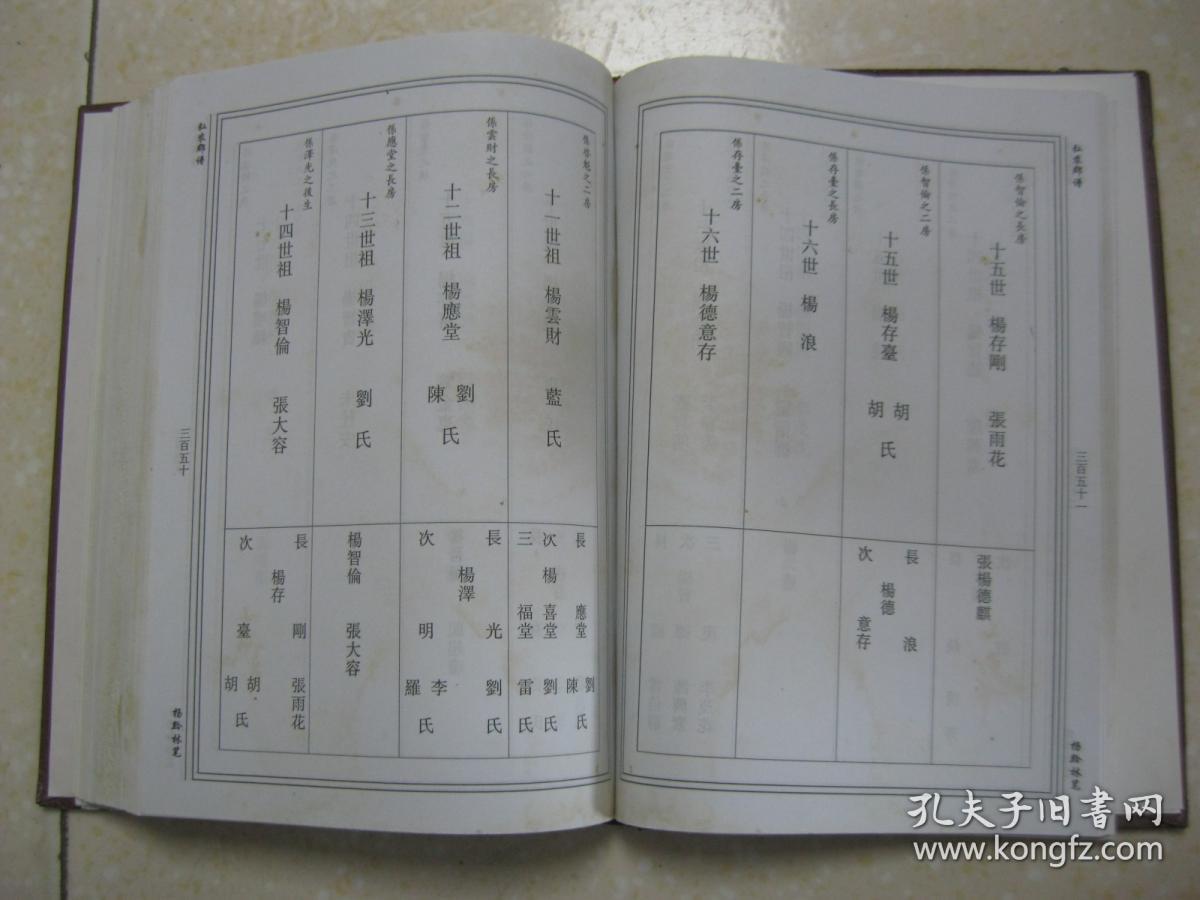 之二房
十一世祖 楊雲財 藍氏
長 應堂 劉 陳 氏
次 楊 喜堂 劉氏
三 福堂 雷氏
係雲財之長房
十二世祖 楊應堂 劉 陳 氏
長 楊澤 光 劉氏
次 明 李 羅 氏
係應堂之長房
十三世祖 楊澤光 劉氏
楊智倫 張大容
係澤光之後生
十四世祖 楊智倫 張大容
長 楊存 剛 張雨花
次 臺 胡 胡 氏
三百五十
係智倫之長房
十五世 楊存剛 張雨花
張楊德麒
係智倫之二房
十五世 楊存臺 胡 胡 氏
長 楊德 浪
次 意存
係存臺之長房
十六世 楊浪
係存臺之二房
十六世 楊德意存
三百五十一
孔夫子旧書网
www.kongfz.com